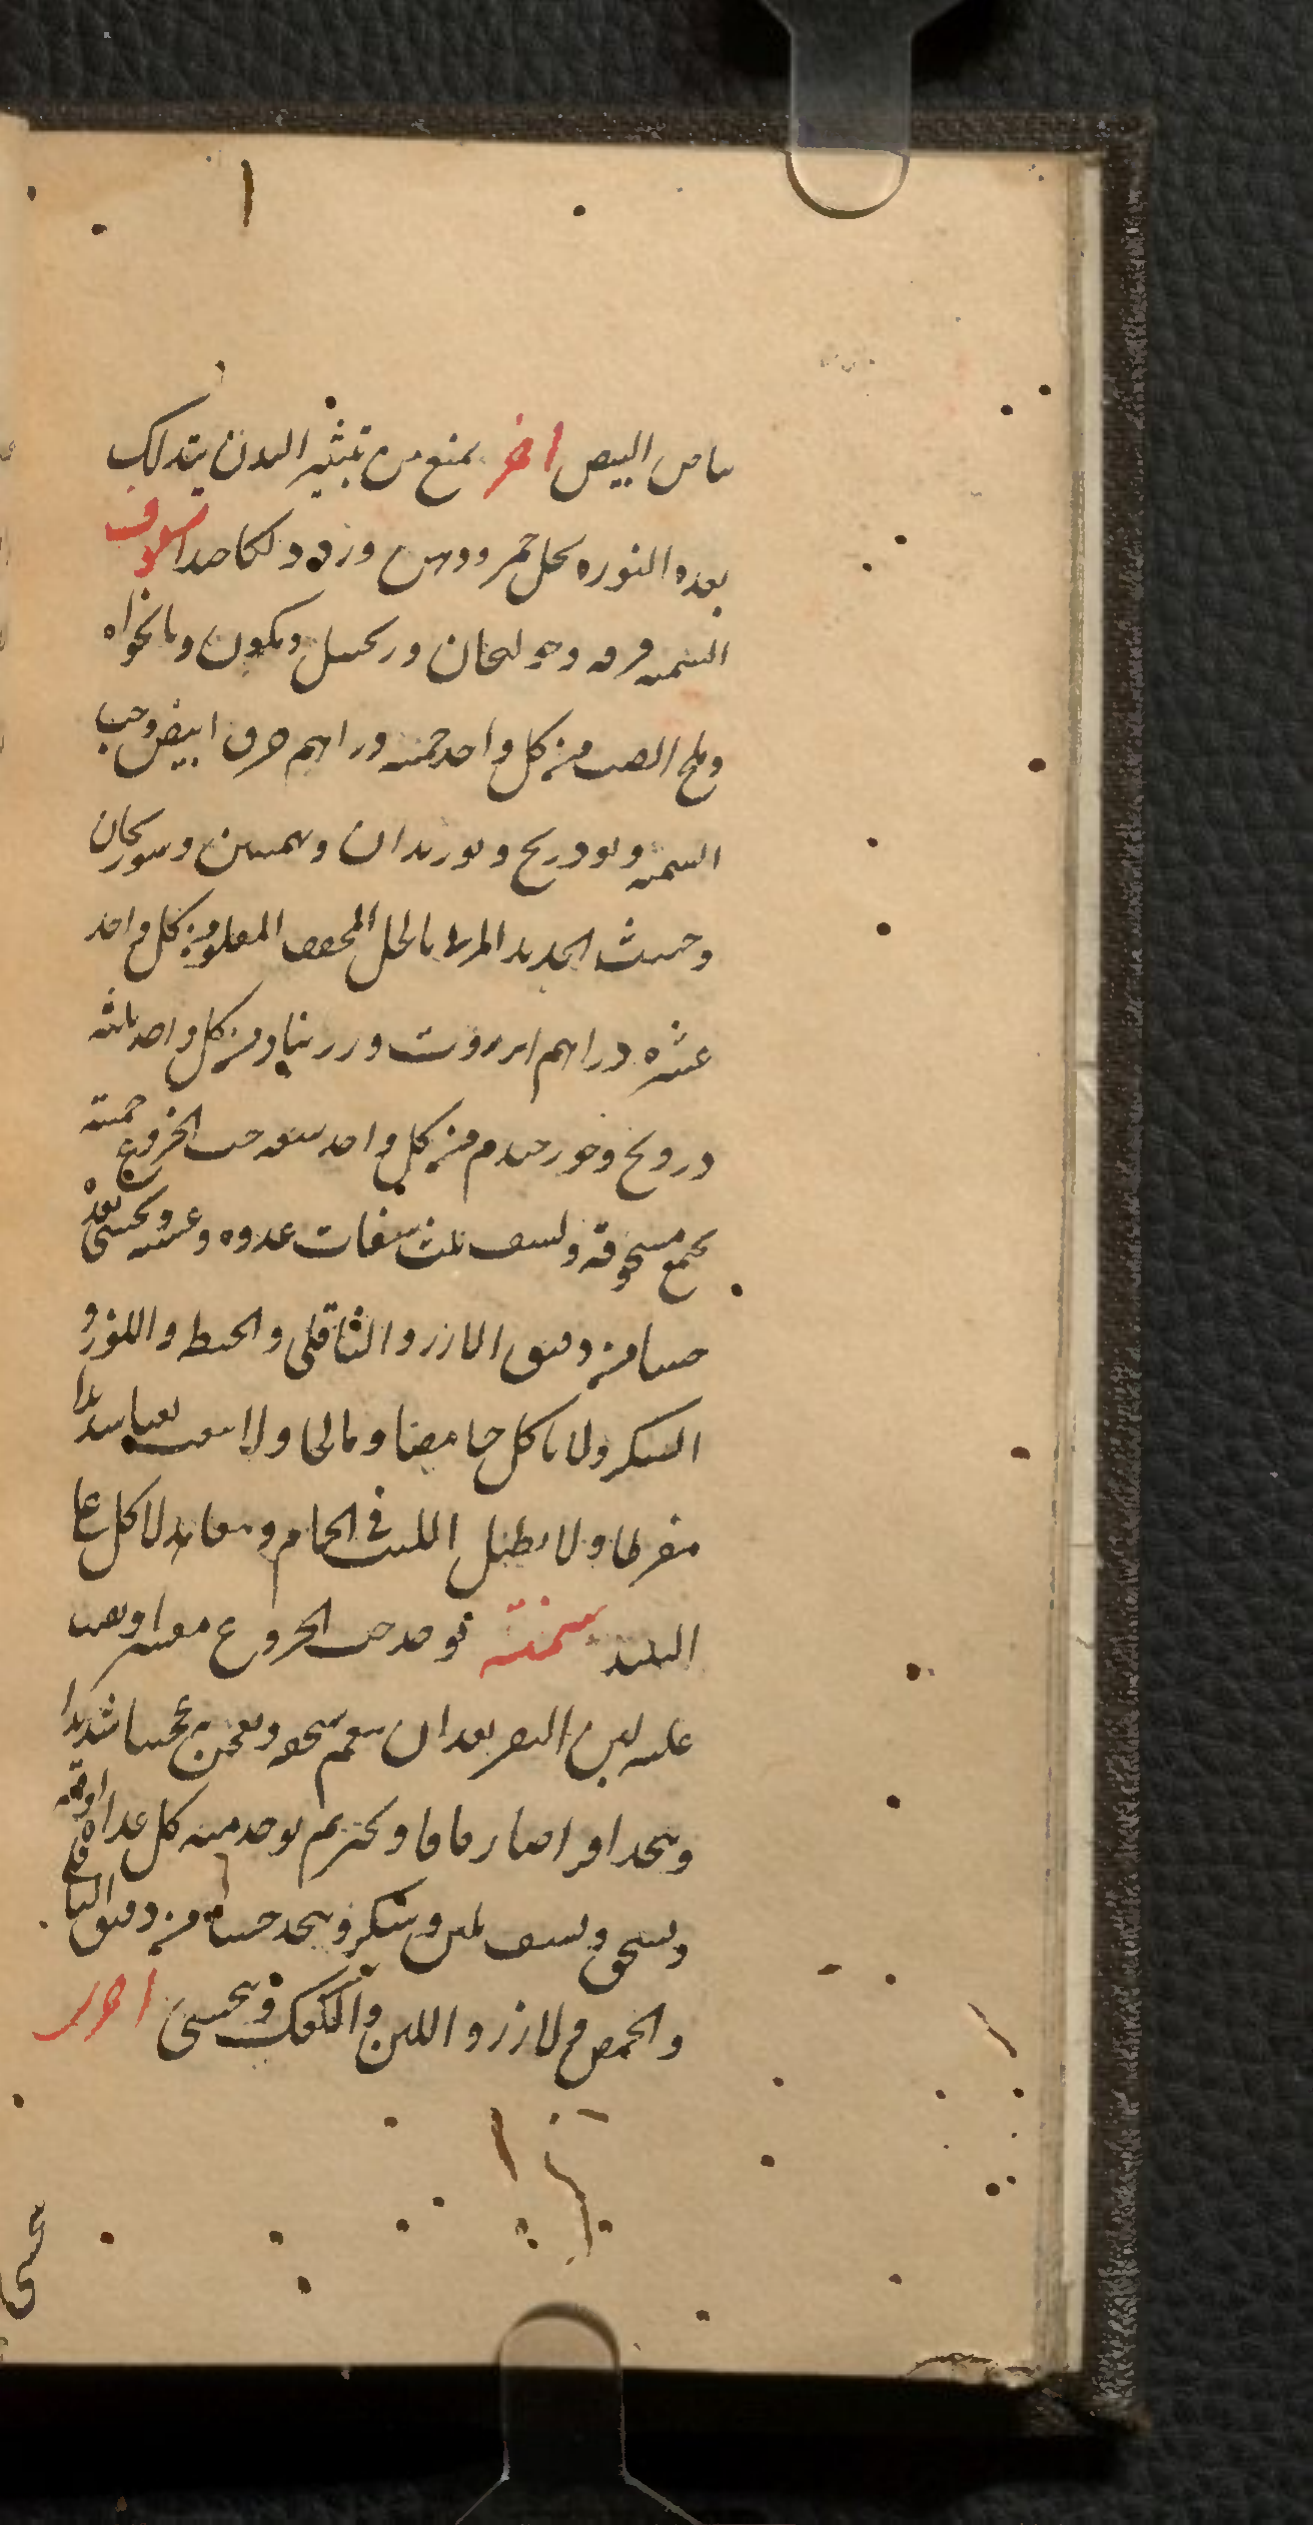 بياض البيض اخر يمنع من تبثير البدن يتدلك
بعده النوره بخل خمر ودهن ورد ودلكا جيدا سفوف
السمنه قرفه وخولنجان وزنجبيل وكمون ونانخواه
وملح من كل واحد خمسه دراهم حرف ابيض وحب
السمنه وتودريج وبوزيدان وبهمنين وسورنجان
وخبث الحديد المربا بالخل المجفف المقلو من كل واحد
عشره دراهم انزروت وزرنباد من كل واحد ثلثه
درونج وجوز جندم من كل واحد سبعه حب الخروع خمسة
يجمع مسحوقة ويسف ثلث سفات غدوه وعشيه ويحسى بعد
حسا من دقيق الارز والباقلى والحنطه واللوز و
السكر ولا ياكل حامضا ومالحا ولا يتعب تعبا شديدا
مفرطا ولا يطيل اللبث في الحمام ويعاود الاكل على
النبيذ سمنة تؤخذ حب الخروع مقشر ويصب
عليه لبن البقر بعد ان ينعم سحقه ويعجن عجنا شديدا
ويتخذ اقراصا رقاقا ويخبز ثم يؤخذ منه كل غداه اوقيه
ويسحق ويسف بلبن وسكر ويتخذ حسا من دقيق الباقلى
والحمص والارز واللبن والكعك ويحسى اخر